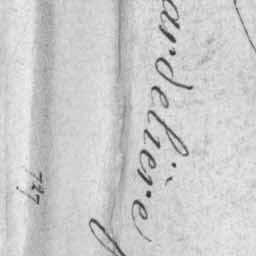 ardelière
727